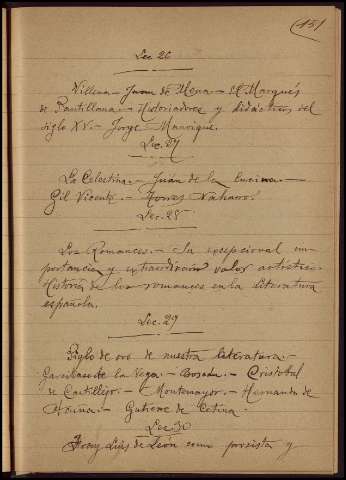 (15)
Lec. 26
Villena.- Juan de Mena.- El Marqués
de Santillana.- Historiadores y didácticos del
siglo XV.- Jorge Manrique.
Lec. 27
La Celestina.- Juan de la Encina.-
Gil Vicente.- Torres Naharro.
Lec. 28
Los Romances.- Su excepcional im-
portancia y extraordinario valor artístico.-
Historia de los romances en la literatura
española.
Lec. 29
Siglo de oro de nuestra literatura.-
Garcilaso de la Vega.- Boscán.- Cristobal
de Castillejo.- Montemayor.- Hernando de
Acuña.- Gutierre de Cetina.
Lec. 30
Fray Luis de León como prosista y